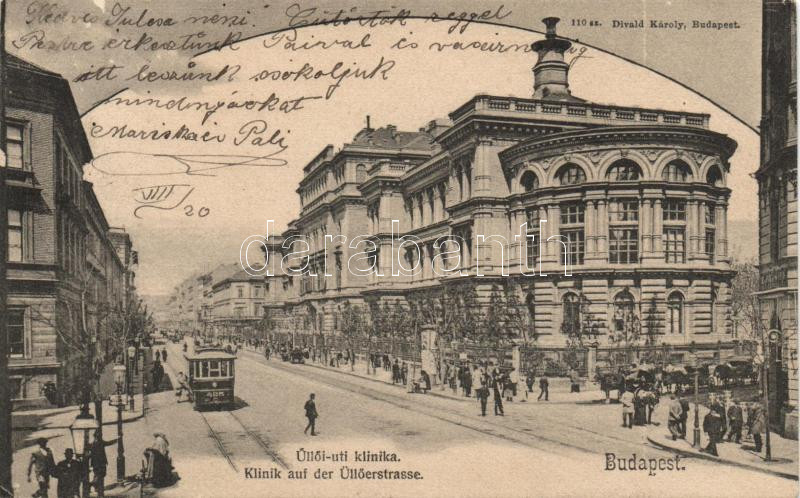 110 sz. Divald Károly, Budapest.
Kedves Julcsa néni! Csütörtök reggel
érkeztünk Párival és
itt leszünk sokoljuk
Mariska és Pali
VIII 20
darabanth
485
Üllői-uti klinika.
Klinik auf der Üllőerstrasse.
Budapest.